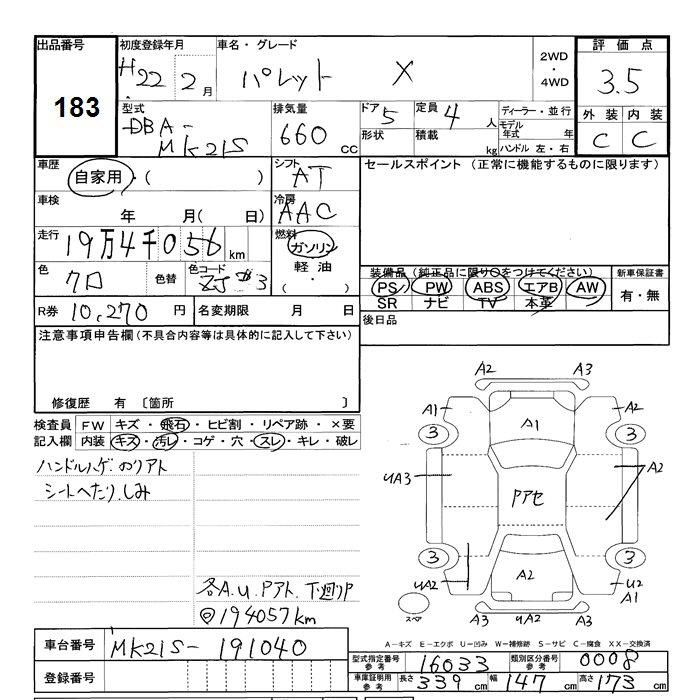 出品番号
183
初度登録年月
H22 2月
車名・グレード
パレット X
2WD
・
4WD
評価点
3.5
外装 内装
C C
型式
DBA-
MK21S
排気量
660 cc
ドア 5
形状
定員 4 人
積載 kg
ディーラー・並行
モデル
年式 年
ハンドル 左・右
車歴
自家用・( )
シフト
AT
セールスポイント (正常に機能するものに限ります)
車検
年 月( 日)
冷房
AAC
走行
19万4千056 km
燃料
ガソリン
軽油
( ・ )
色
クロ
色替
色コード
ZJ 3
装備品 (純正品に限り○をつけてください)
PS PW ABS エアB AW
SR ナビ TV 本革
新車保証書
有・無
R券 10,270 円
名変期限 月 日
後日品
注意事項申告欄(不具合内容等は具体的に記入して下さい)
修復歴 有 〔箇所 〕
検査員
記入欄
FW キズ・飛石・ヒビ割・リペア跡・×要
内装 キズ・汚レ・コゲ・穴・スレ・キレ・破レ
ハンドルハゲ のリアト
シートへたり.しみ
各A.U.Pアト.下廻りP
◎194057km
A2 A3
A1 A1 A2
3 3
UA3 Pアセ A2
3 3
UA2 A2 U2
A1
スペア
A3 UA2 A3
A-キズ E-エクボ U-凹み W-補修跡 S-サビ C-腐食 XX-交換済
車台番号 MK21S- 191040
登録番号
型式指定番号
参考
16033
類別区分番号
参考
0008
車庫証明用
参考
長さ 339 cm 幅 147 cm 高さ 173 cm